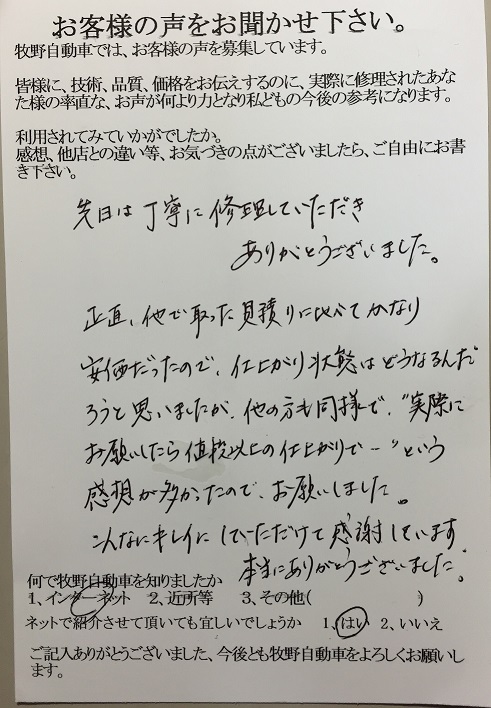 お客様の声をお聞かせ下さい。
牧野自動車では、お客様の声を募集しています。
皆様に、技術、品質、価格をお伝えするのに、実際に修理されたあな
た様の率直な、お声が何より力となり私どもの今後の参考になります。
利用されてみていかがでしたか。
感想、他店との違い等、お気づきの点がございましたら、ご自由にお書
き下さい。
先日は丁寧に修理していただき
ありがとうございました。
正直、他で取った見積りに比べてかなり
安価だったので、仕上がり状態はどうなるんだ
ろうと思いましたが、他の方も同様で、"実際に
お願いしたら値段以上の仕上がりで…"という
感想が多かったので、お願いしました。
こんなにキレイにしていただけて感謝しています
本当にありがとうございました。
何で牧野自動車を知りましたか
1、インターネット 2、近所等 3、その他( )
ネットで紹介させて頂いても宜しいでしょうか 1、はい 2、いいえ
ご記入ありがとうございました、今後とも牧野自動車をよろしくお願いし
ます。